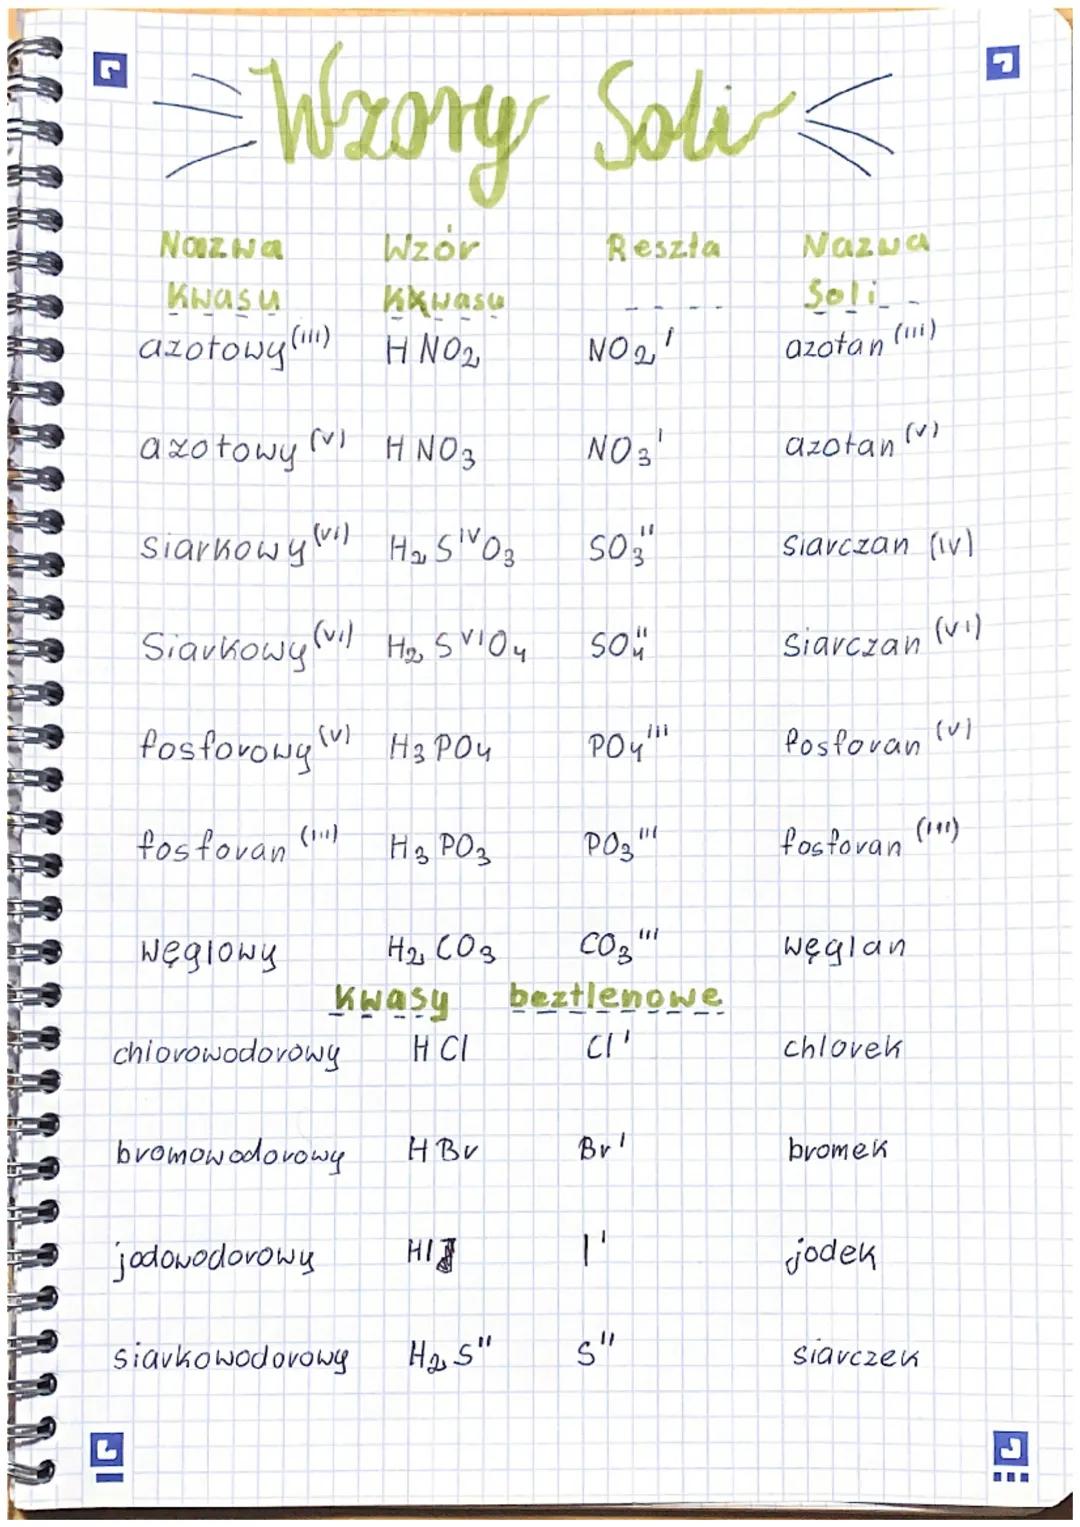 Wzory Soli
Nazwa Wzór Reszta Nazwa
Kwasu KKwasu ----- Soli
azotowy (III) HNO₂ NO₂' azotan (III)
azotowy (V) HNO₃ NO₃' azotan (V)
siarkowy (VI) H₂SᴵⱽO₃ SO₃'' siarczan (IV)
Siarkowy (VI) H₂SⱽᴵO₄ SO₄'' siarczan (VI)
fosforowy (V) H₃PO₄ PO₄''' fosforan (V)
fosforan (III) H₃PO₃ PO₃''' fosforan (III)
węglowy H₂CO₃ CO₃''' węglan
Kwasy beztlenowe
chlorowodorowy HCl Cl' chlorek
bromowodorowy HBr Br' bromek
jodowodorowy HI I' jodek
siarkowodorowy H₂S'' S'' siarczek